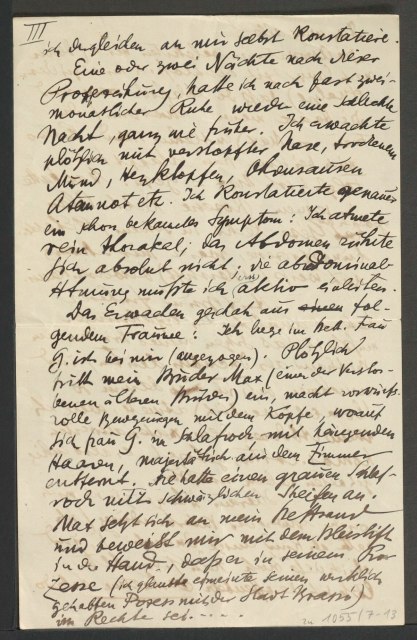 III
ich dergleichen an mir selbst konstatiere.
Eine oder zwei Nächte nach dieser
Prophezeihung, hatte ich nach fast zwei-
monatlicher Ruhe wieder eine schlechte
Nacht, ganz wie früher. Ich erwachte
plötzlich mit verstopfter Nase, trockenem
Mund, Herzklopfen, Ohrensausen
Atemnot etc. Ich konstatierte genauer
ein schon bekanntes Symptom: Ich atmete
rein thorakal; das Abdomen rührte
sich absolut nicht; die abdominal-
Atmung mußte ich aktiv einleiten.
Das Erwachen geschah aus einem fol-
gendem Traume: Ich liege im Bett. Frau
G. ist bei mir (angezogen). Plötzlich
tritt mein Bruder Max (einer der verstor-
benen älteren Brüder) ein, macht vorwurfs-
volle Bewegungen mit dem Kopfe, worauf
sich frau G. im Schlafrock mit hängenden
Haaren, majestätisch aus dem Zimmer
entfernt. Sie hatte einen grauen Schlaf-
rock mit schwärzlichen Streifen an.
Max setzt sich an mein Bettrand
und beweist mir mit dem Bleistift
in der Hand, daß er in seinem Pro
zesse (ich glaube er meinte seinen wirklich
gehabten Prozess mit der Stadt Brassó)
im Rechte sei. ....
zu 1055/7-13